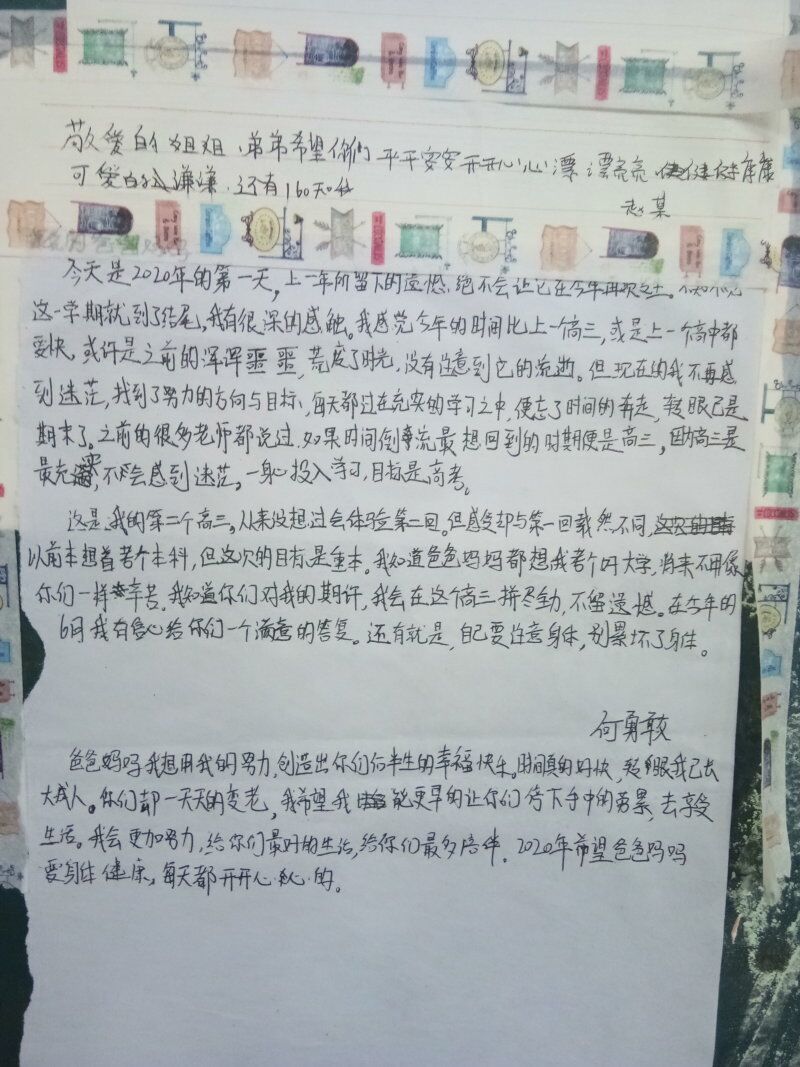 敬爱的姐姐、弟弟希望你们平平安安开开心心漂漂亮亮健健康康
可爱的谦谦.还有160天
赵某
今天是2020年的第一天，上一年所留下的遗憾.绝不会让它在今年再次发生。不知不觉
这一学期就到了结尾，我有很深的感触。我感觉今年的时间比上一个高三，或是上一个高中都
要快。或许是之前的浑浑噩噩，荒度了时光，没有注意到它的流逝。但现在的我不再感
到迷茫，找到了努力的方向与目标，每天都过在充实的学习之中，便忘了时间的奔走，转眼已是
期末了。之前的很多老师都说过，如果时间倒流最想回到的时期便是高三，因为高三是
最充实，不会感到迷茫，一身心投入学习，目标是高考。
这是我的第二个高三，从来没想过会体验第二回。但感受却与第一回截然不同，
以前本想着考个本科，但这次的目标是重本。我知道爸爸妈妈都想我考个好大学，将来不用像
你们一样辛苦，我知道你们对我的期许，我会在这个高三拼尽全力，不留遗憾。在今年的
6月我有信心给你们一个满意的答复。还有就是，自己要注意身体，别累坏了身体。
何勇敢
爸爸妈妈我想用我的努力，创造出你们后半生的幸福快乐。时间真的好快，转眼我已长
大成人。你们却一天天的变老，我希望我能更早的让你们停下手中的劳累，去享受
生活。我会更加努力，给你们最好的生活，给你们最多陪伴。2020年希望爸爸妈妈
要身体健康，每天都开开心心的。